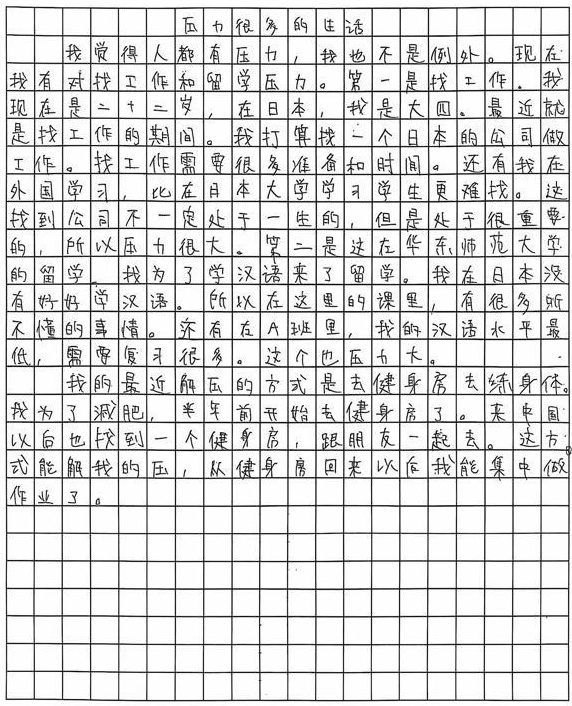 压力很多的生活
我觉得人都有压力，我也不是例外。现在
我有对找工作和留学压力。第一是找工作。我
现在是二十二岁，在日本，我是大四。最近就
是找工作的期间。我打算找一个日本的公司做
工作。找工作需要很多准备和时间。还有我在
外国学习，比在日本大学学习学生更难找。这
找到公司不一定处于一生的，但是处于很重要
的，所以压力很大。第二是这在华东师范大学
的留学。我为了学汉语来了留学。我在日本没
有好好学汉语。所以在这里的课里，有很多所
不懂的事情。还有在A班里，我的汉语水平最
低，需要复习很多。这个也压力大。
我的最近解压的方式是去健身房去练身体。
我为了减肥，半年前开始去健身房了。来中国
以后也找到一个健身房，跟朋友一起去。这方
式能解我的压，从健身房回来以后我能集中做
作业了。